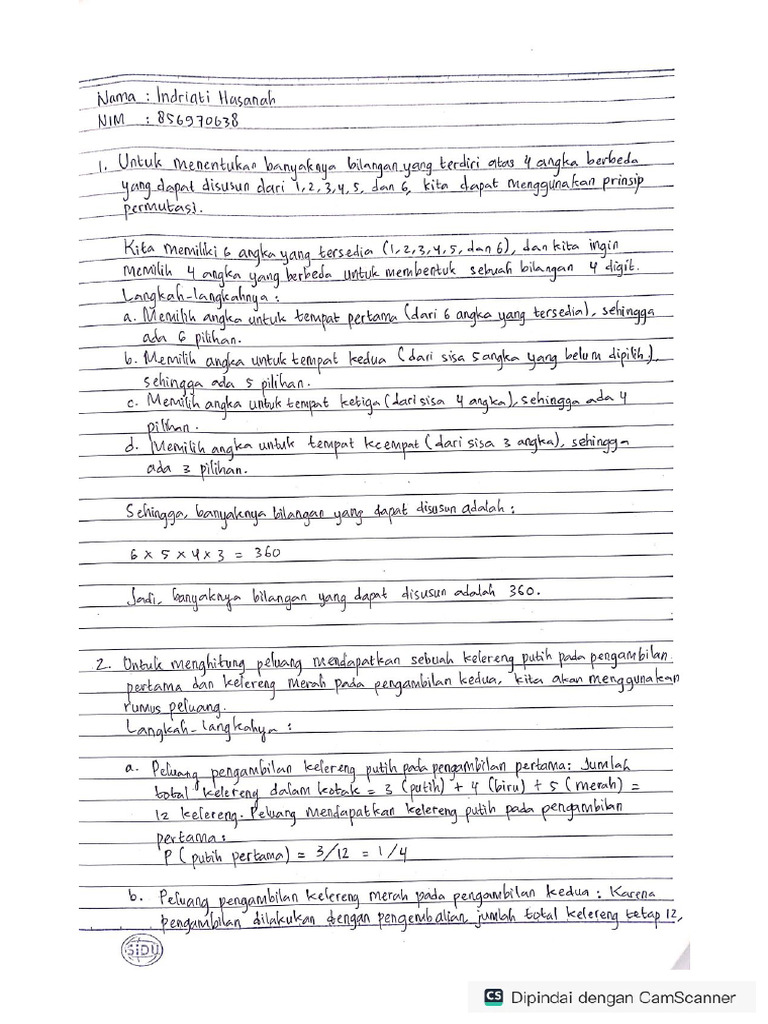 Nama : Indriati Hasanah
NIM : 856970638
1. Untuk menentukan banyaknya bilangan yang terdiri atas 4 angka berbeda
yang dapat disusun dari 1, 2, 3, 4, 5, dan 6, kita dapat menggunakan prinsip
permutasi.
Kita memiliki 6 angka yang tersedia (1, 2, 3, 4, 5, dan 6), dan kita ingin
memilih 4 angka yang berbeda untuk membentuk sebuah bilangan 4 digit.
Langkah-langkahnya :
a. Memilih angka untuk tempat pertama (dari 6 angka yang tersedia), sehingga
ada 6 pilihan.
b. Memilih angka untuk tempat kedua (dari sisa 5 angka yang belum dipilih),
sehingga ada 5 pilihan.
c. Memilih angka untuk tempat ketiga (dari sisa 4 angka), sehingga ada 4
pilihan.
d. Memilih angka untuk tempat keempat (dari sisa 3 angka), sehingga
ada 3 pilihan.
Sehingga, banyaknya bilangan yang dapat disusun adalah :
6 x 5 x 4 x 3 = 360
Jadi, banyaknya bilangan yang dapat disusun adalah 360.
2. Untuk menghitung peluang mendapatkan sebuah kelereng putih pada pengambilan
pertama dan kelereng merah pada pengambilan kedua, kita akan menggunakan
rumus peluang.
Langkah-langkahya :
a. Peluang pengambilan kelereng putih pada pengambilan pertama : Jumlah
total kelereng dalam kotak = 3 (putih) + 4 (biru) + 5 (merah) =
12 kelereng. Peluang mendapatkan kelereng putih pada pengambilan
pertama :
P (putih pertama) = 3/12 = 1/4
b. Peluang pengambilan kelereng merah pada pengambilan kedua : Karena
pengambilan dilakukan dengan pengembalian, jumlah total kelereng tetap 12,
SIDU
CS Dipindai dengan CamScanner